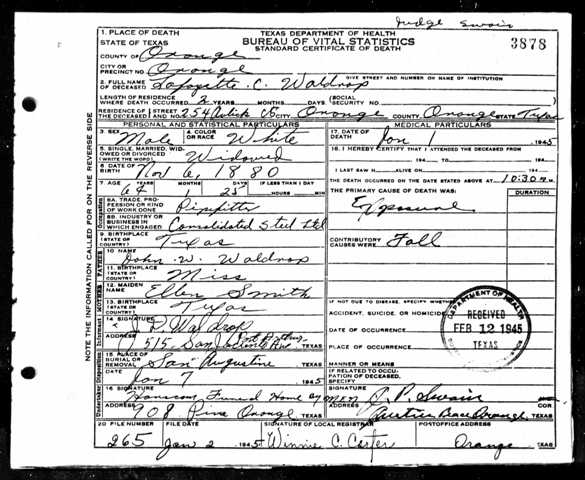 Judge Swain
1. PLACE OF DEATH
STATE OF TEXAS
TEXAS DEPARTMENT OF HEALTH
BUREAU OF VITAL STATISTICS
STANDARD CERTIFICATE OF DEATH
3878
COUNTY OF Orange
CITY OR PRECINCT NO. Orange
GIVE STREET AND NUMBER OR NAME OF INSTITUTION
2. FULL NAME OF DECEASED Lafayette C. Waldrop
LENGTH OF RESIDENCE WHERE DEATH OCCURRED 2 YEARS MONTHS DAYS (SOCIAL SECURITY NO.)
RESIDENCE OF THE DECEASED STREET AND NO. 254 CITY Orange COUNTY Orange STATE Texas
PERSONAL AND STATISTICAL PARTICULARS
MEDICAL PARTICULARS
3. SEX Male 4. COLOR OR RACE White
17. DATE OF DEATH Jan 1945
5. SINGLE, MARRIED, WIDOWED OR DIVORCED (WRITE THE WORD) Widowed
18. I HEREBY CERTIFY THAT I ATTENDED THE DECEASED FROM
194 TO 194
6. DATE OF BIRTH Nov 6, 1880
I LAST SAW H ALIVE ON 194
7. AGE YEARS 64 MONTHS 1 DAYS 25 IF LESS THAN 1 DAY HOURS MIN
THE DEATH OCCURRED ON THE DATE STATED ABOVE AT 10:30 M.
THE PRIMARY CAUSE OF DEATH WAS: DURATION
8A. TRADE, PROFESSION OR KIND OF WORK DONE Pipefitter
Exposure
8B. INDUSTRY OR BUSINESS IN WHICH ENGAGED Consolidated Steel
9. BIRTHPLACE (STATE OR COUNTRY) Texas
CONTRIBUTORY CAUSES WERE: Fall
10. NAME John W. Waldrop
11. BIRTHPLACE (STATE OR COUNTRY) Miss
12. MAIDEN NAME Ellen Smith
13. BIRTHPLACE (STATE OR COUNTRY) Texas
IF NOT DUE TO DISEASE, SPECIFY WHETHER:
ACCIDENT, SUICIDE, OR HOMICIDE
DATE OF OCCURRENCE
PLACE OF OCCURRENCE
DEPARTMENT OF HEALTH
RECEIVED
FEB 12 1945
TEXAS
14. SIGNATURE J P Waldrop
ADDRESS 1515 San Jacinto Ave Port Arthur, TEXAS
15. PLACE OF BURIAL OR REMOVAL San Augustine TEXAS
MANNER OR MEANS
DATE Jan 7 1945
IF RELATED TO OCCUPATION OF DECEASED, SPECIFY
16. SIGNATURE Funeral Home
SIGNATURE J. P. Swain COR
ADDRESS 908 Pine Orange TEXAS
ADDRESS Justice Peace Orange, TEXAS
20. FILE NUMBER FILE DATE SIGNATURE OF LOCAL REGISTRAR POSTOFFICE ADDRESS
265 Jan 2 1945 Winnie C. Carter Orange TEXAS
NOTE THE INFORMATION CALLED FOR ON THE REVERSE SIDE
Occupation
FATHER
MOTHER
Informant
Undertaker Disposition